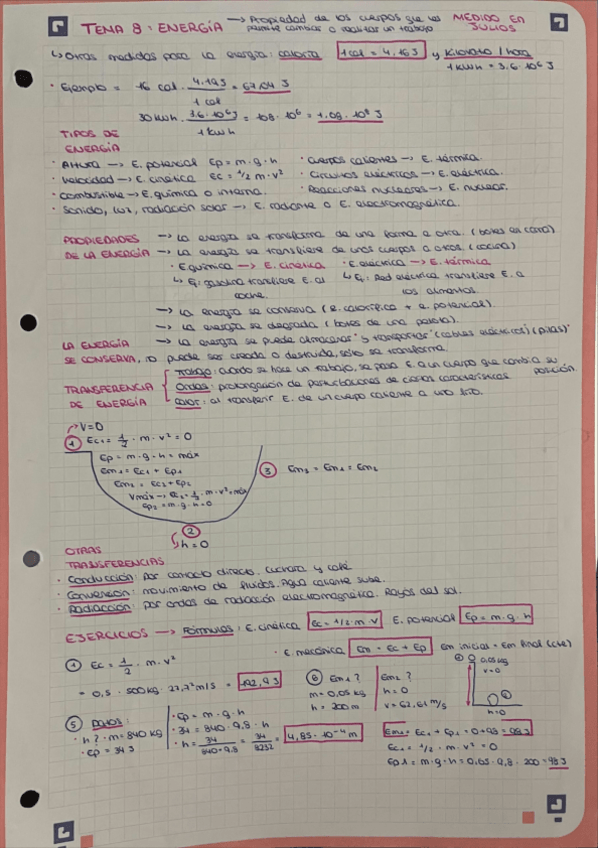 TEMA 8: ENERGÍA → Propiedad de los cuerpos que les permite cambiar o realizar un trabajo MEDIDO EN JULIOS
↳ Otras medidas para la energía: caloría 1 cal = 4,18 J y Kilovatio / hora
1 KWh = 3,6·10⁶ J
· Ejemplo = 16 cal · 4,19 J / 1 cal = 67,04 J
30 KWh · 3,6·10⁶ J / 1 KWh = 108·10⁶ = 1,08·10⁸ J
TIPOS DE
ENERGÍA
· Altura → E. potencial Ep = m·g·h · Cuerpos calientes → E. térmica.
· Velocidad → E. cinética Ec = 1/2 m·v² · Circuitos eléctricos → E. eléctrica.
· Combustible → E. química o interna. · Reacciones nucleares → E. nuclear.
· Sonido, luz, radiación solar → E. radiante o E. electromagnética.
PROPIEDADES → La energía se transforma de una forma a otra.
DE LA ENERGÍA → La energía se transfiere de unos cuerpos a otros. (cocina)
· E química → E. cinética · E. eléctrica → E. térmica
↳ Ej: gasolina transfiere E. al coche. ↳ Ej: Red eléctrica transfiere E. a los alimentos.
→ La energía se conserva (e. calorífica + e. potencial).
→ La energía se degrada (botes de una pelota).
→ La energía se puede almacenar y transportar (cables eléctricos) (pilas)
LA ENERGÍA
SE CONSERVA, no puede ser creada o destruida, sólo se transforma.
TRANSFERENCIA
DE ENERGÍA
Trabajo: cuando se hace un trabajo, se pasa E. a un cuerpo que cambia su posición.
Ondas: prolongación de perturbaciones de ciertas características
Calor: al transferir E. de un cuerpo caliente a uno frío.
V=0
1 Ec₁ = 1/2 · m · v² = 0
Ep = m·g·h = máx
Em₁ = Ec₁ + Ep₁
Em₂ = Ec₂ + Ep₂
Vmáx → Ec₂ = 1/2 · m · v² = máx
Ep₂ = m·g·h = 0
3 Em₃ = Em₁ = Em₂
2
h = 0
OTRAS
TRANSFERENCIAS
· Conducción: por contacto directo. Cuchara y café
· Convención: movimiento de fluidos. Agua caliente sube.
· Radiación: por ondas de radiación electromagnética. Rayos del sol.
EJERCICIOS → Fórmulas: E. cinética Ec = 1/2 · m · v E. potencial Ep = m·g·h
· E. mecánica Em = Ec + Ep Em inicial = Em final (cte)
1 Ec = 1/2 · m · v²
= 0,5 · 500kg · 27,7² m/s = 192,9 J
6 Em₁? Em₂?
m = 0,05 kg h = 0
h = 200 m v = 62,61 m/s
1 0,05 kg
v = 0
2
h = 0
5 Datos:
· h? · m = 840 kg
· Ep = 34 J
· Ep = m·g·h
· 34 = 840 · 9,8 · h
· h = 34 / 840·9,8 = 34 / 8232 = 4,85 · 10⁻⁴ m
Em₁ = Ec₁ + Ep₁ = 0 + 98 = 98 J
Ec₁ = 1/2 · m · v² = 0
Ep1 = m·g·h = 0,05 · 9,8 · 200 = 98 J